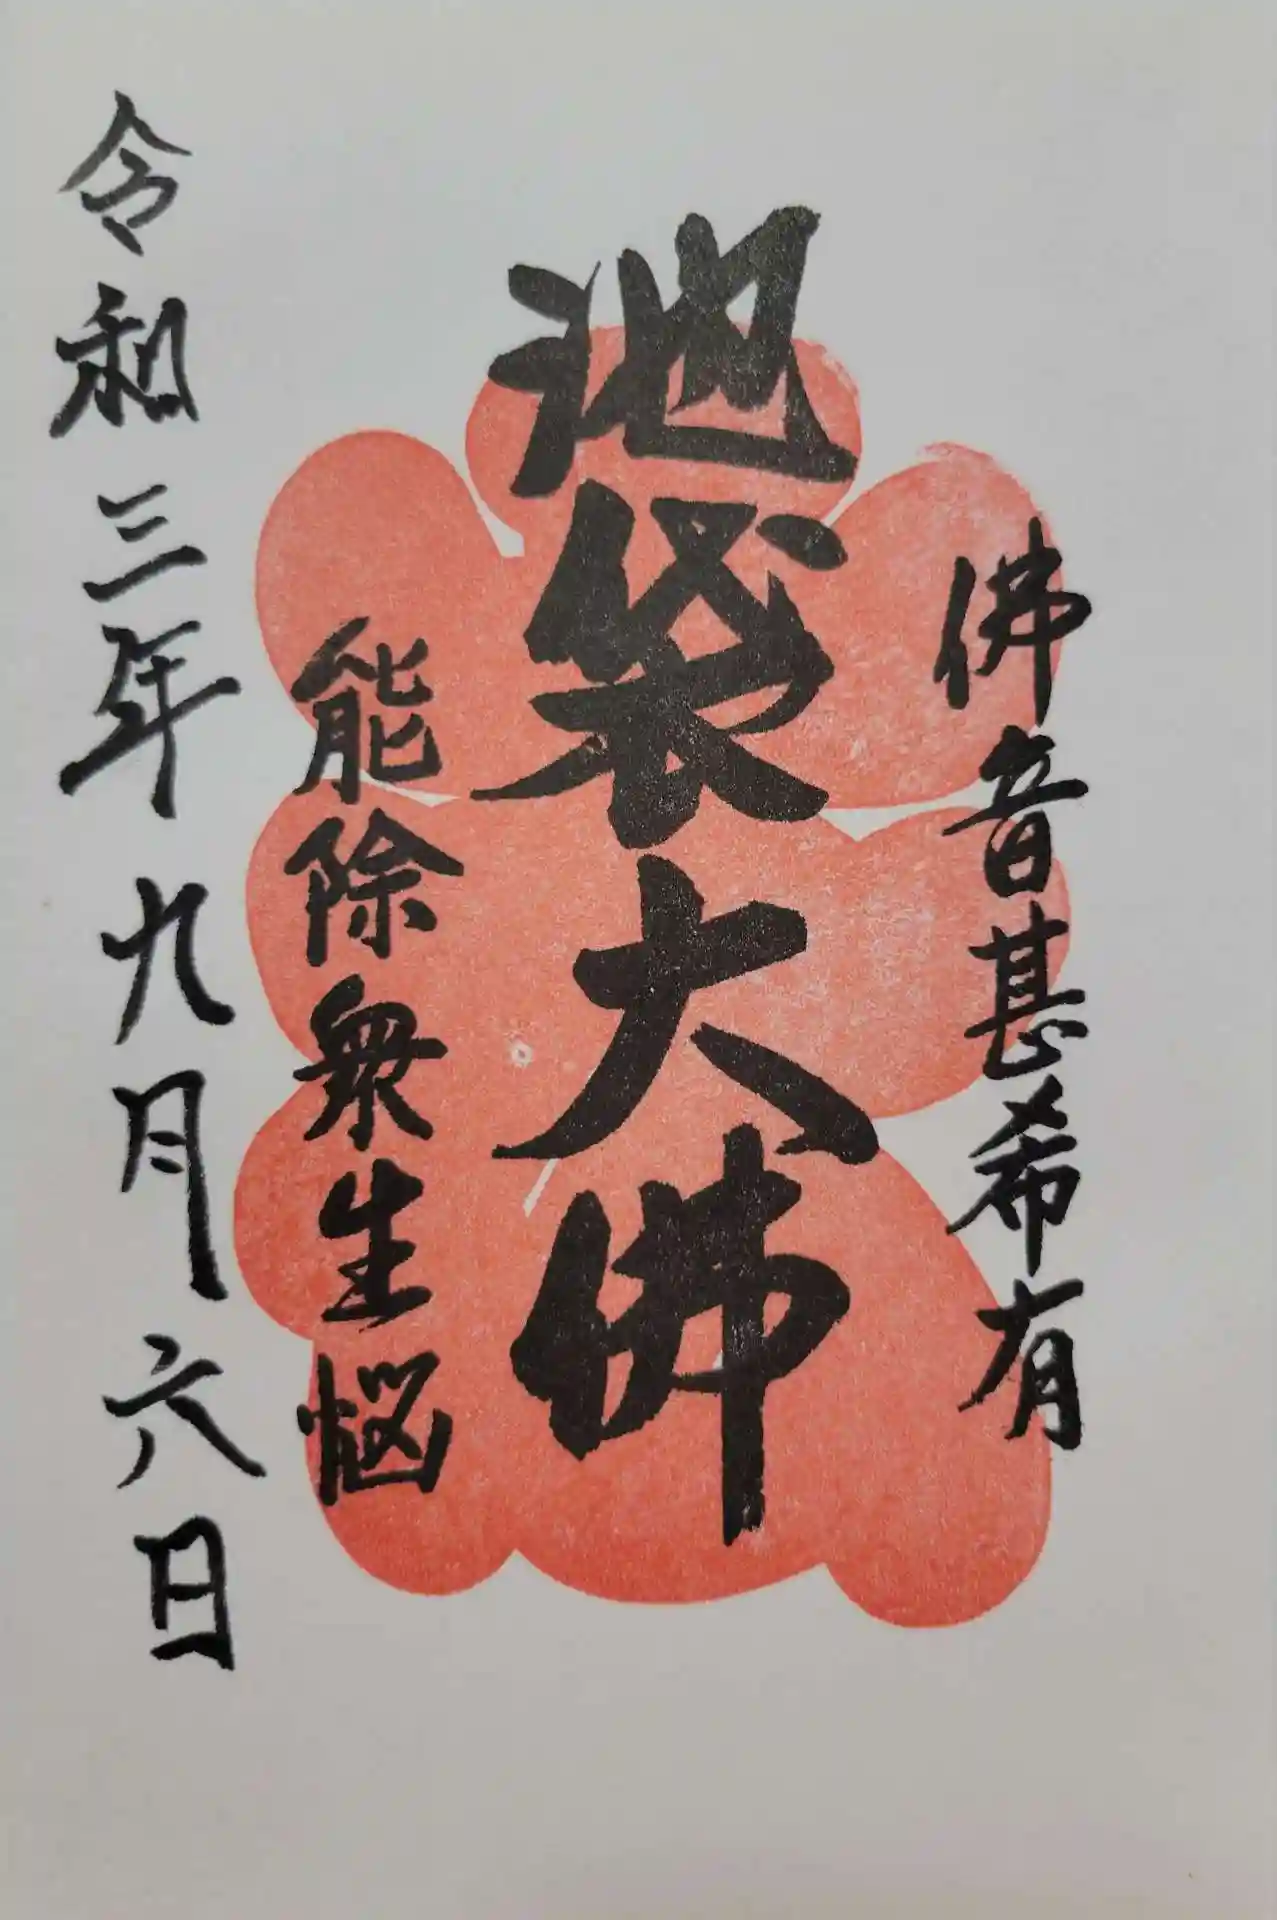 佛音甚希有
池袋大佛
能除衆生悩
令和三年九月六日